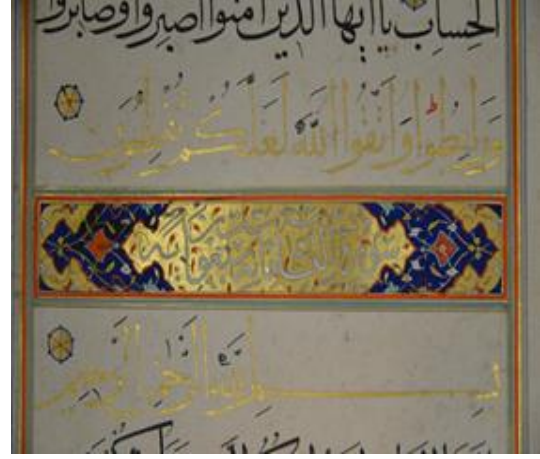 الحساب يا ايها الذين امنوا اصبروا وصابروا
ورابطوا واتقوا الله لعلكم تفلحون
سورة النساء
بسم الله الرحمن الرحيم